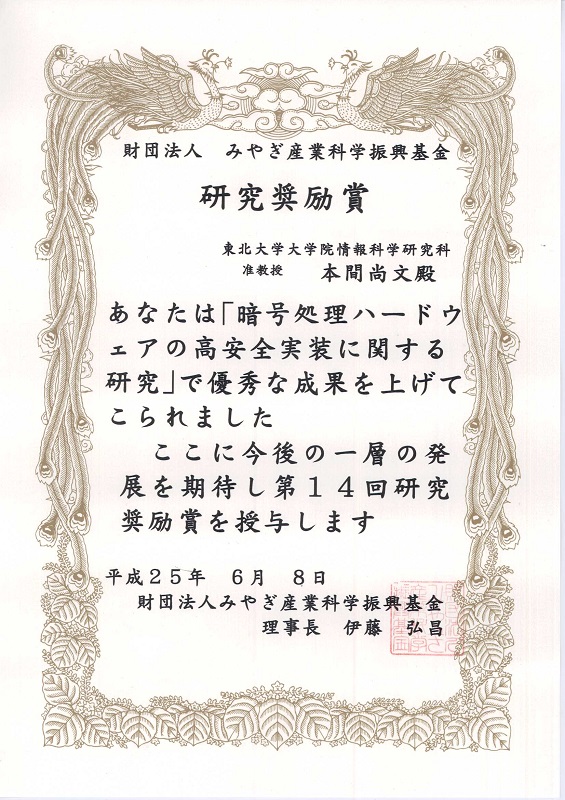 財団法人　みやぎ産業科学振興基金
研究奨励賞
東北大学大学院情報科学研究科
准教授　本間尚文殿
あなたは「暗号処理ハードウ
ェアの高安全実装に関する
研究」で優秀な成果を上げて
こられました
ここに今後の一層の発
展を期待し第１４回研究
奨励賞を授与します
平成２５年　６月　８日
財団法人みやぎ産業科学振興基金
理事長　伊藤　弘昌